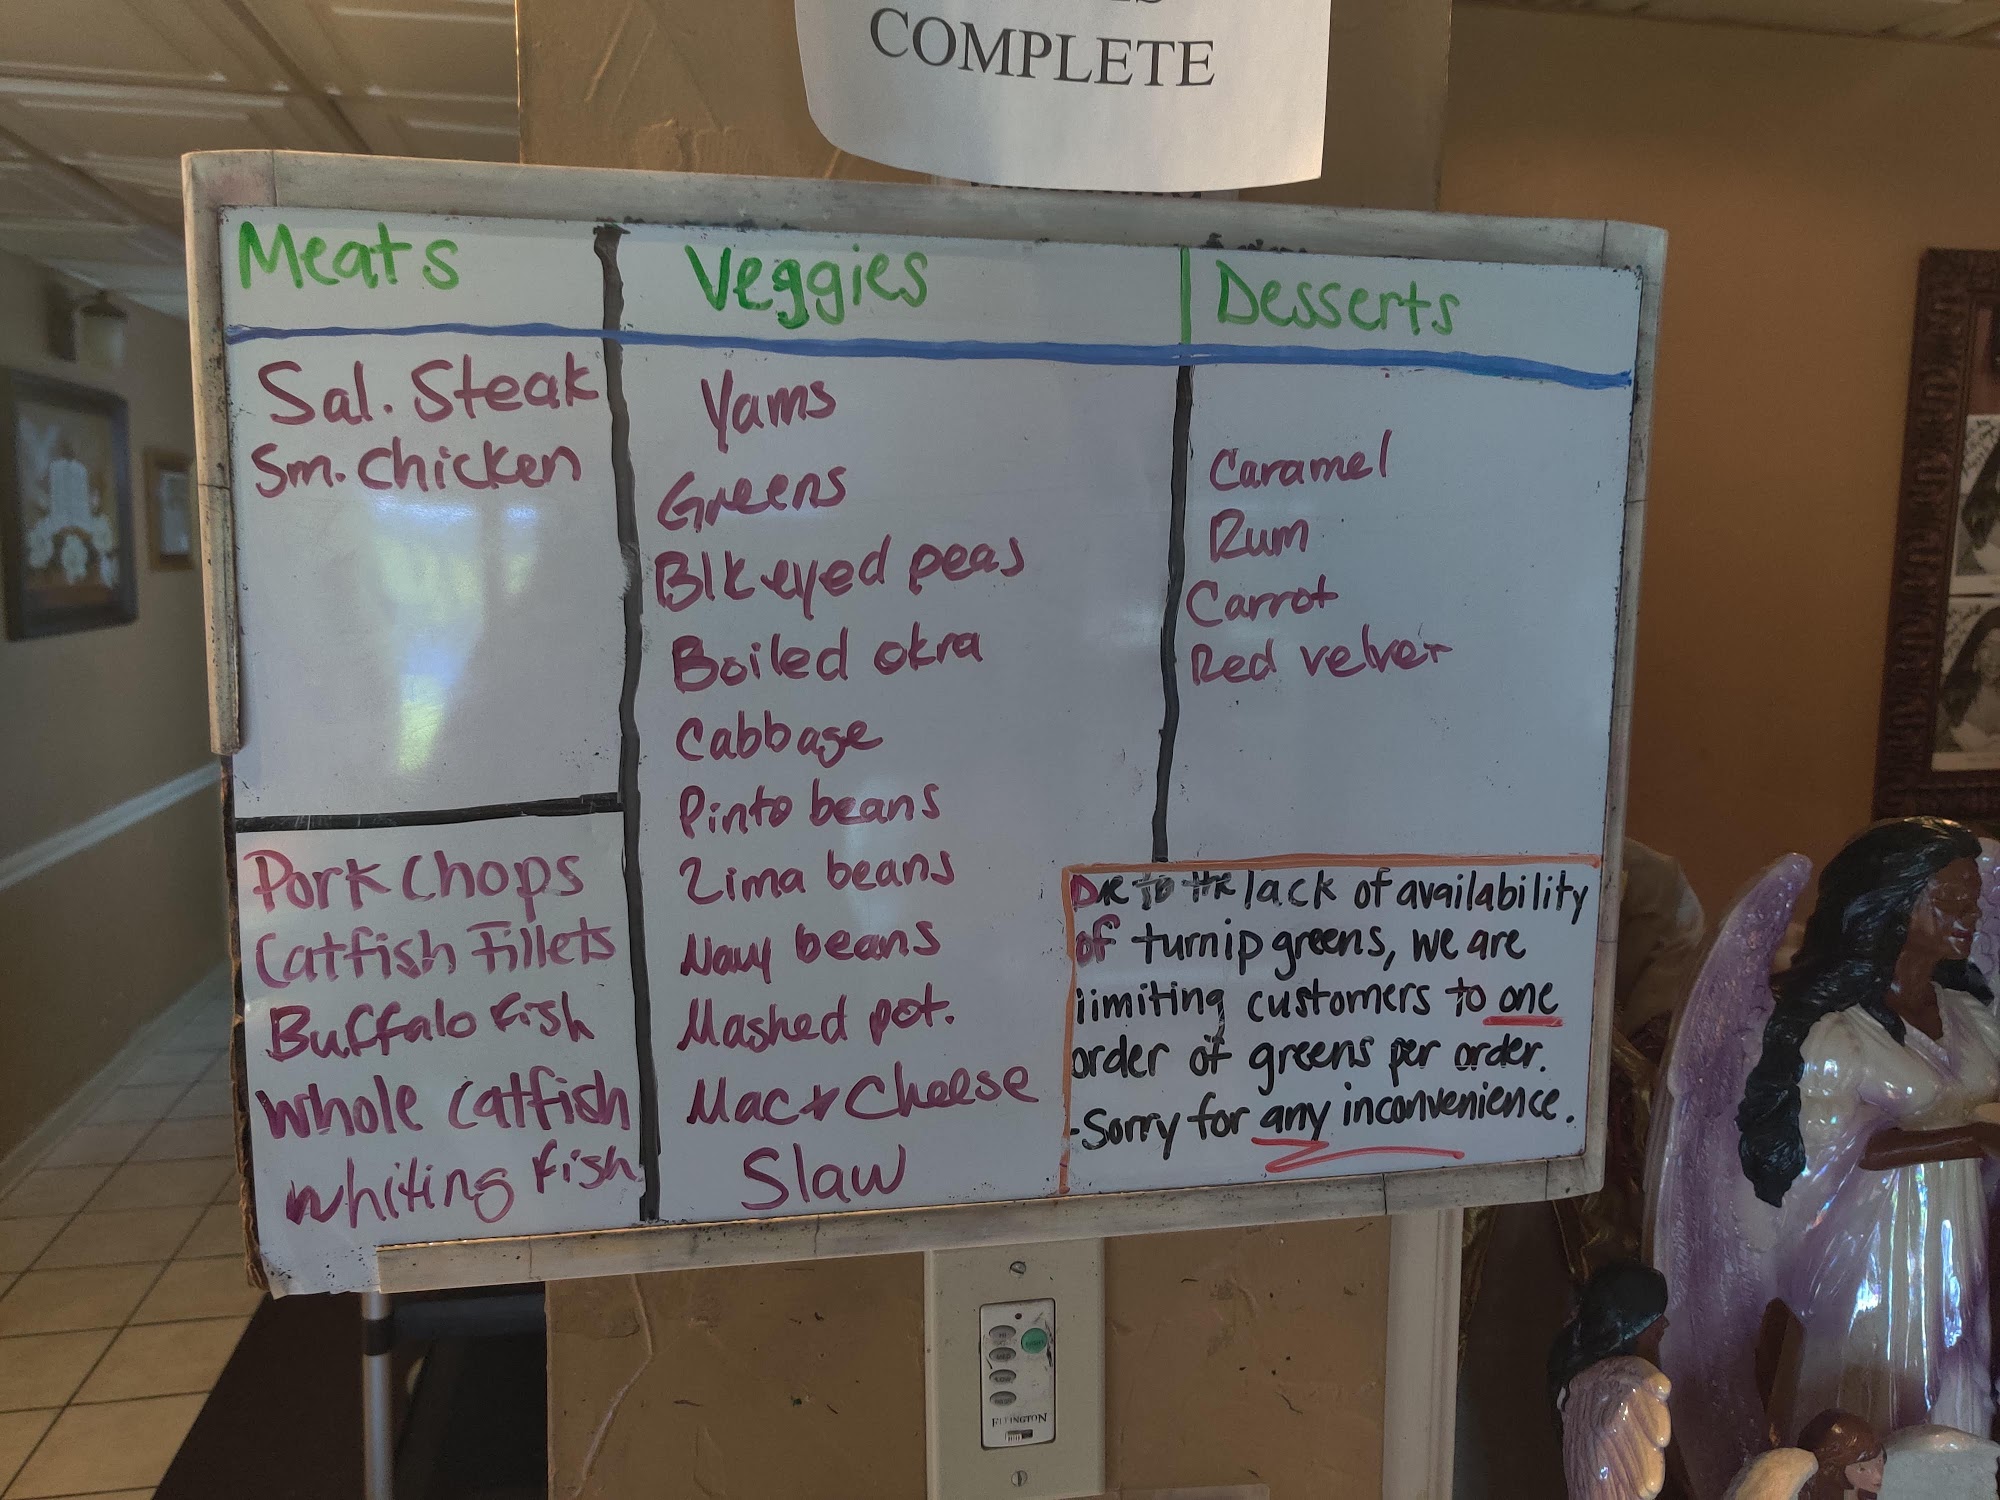 COMPLETE
Meats
Sal. Steak
Sm. Chicken
Pork Chops
Catfish Fillets
Buffalo Fish
Whole Catfish
Whiting Fish
Veggies
Yams
Greens
Blk eyed peas
Boiled okra
Cabbage
Pinto beans
Lima beans
Navy beans
Mashed pot.
Mac & Cheese
Slaw
Desserts
Caramel
Rum
Carrot
Red velvet
Due to the lack of availability
of turnip greens, we are
limiting customers to one
order of greens per order.
-Sorry for any inconvenience.
ELLINGTON